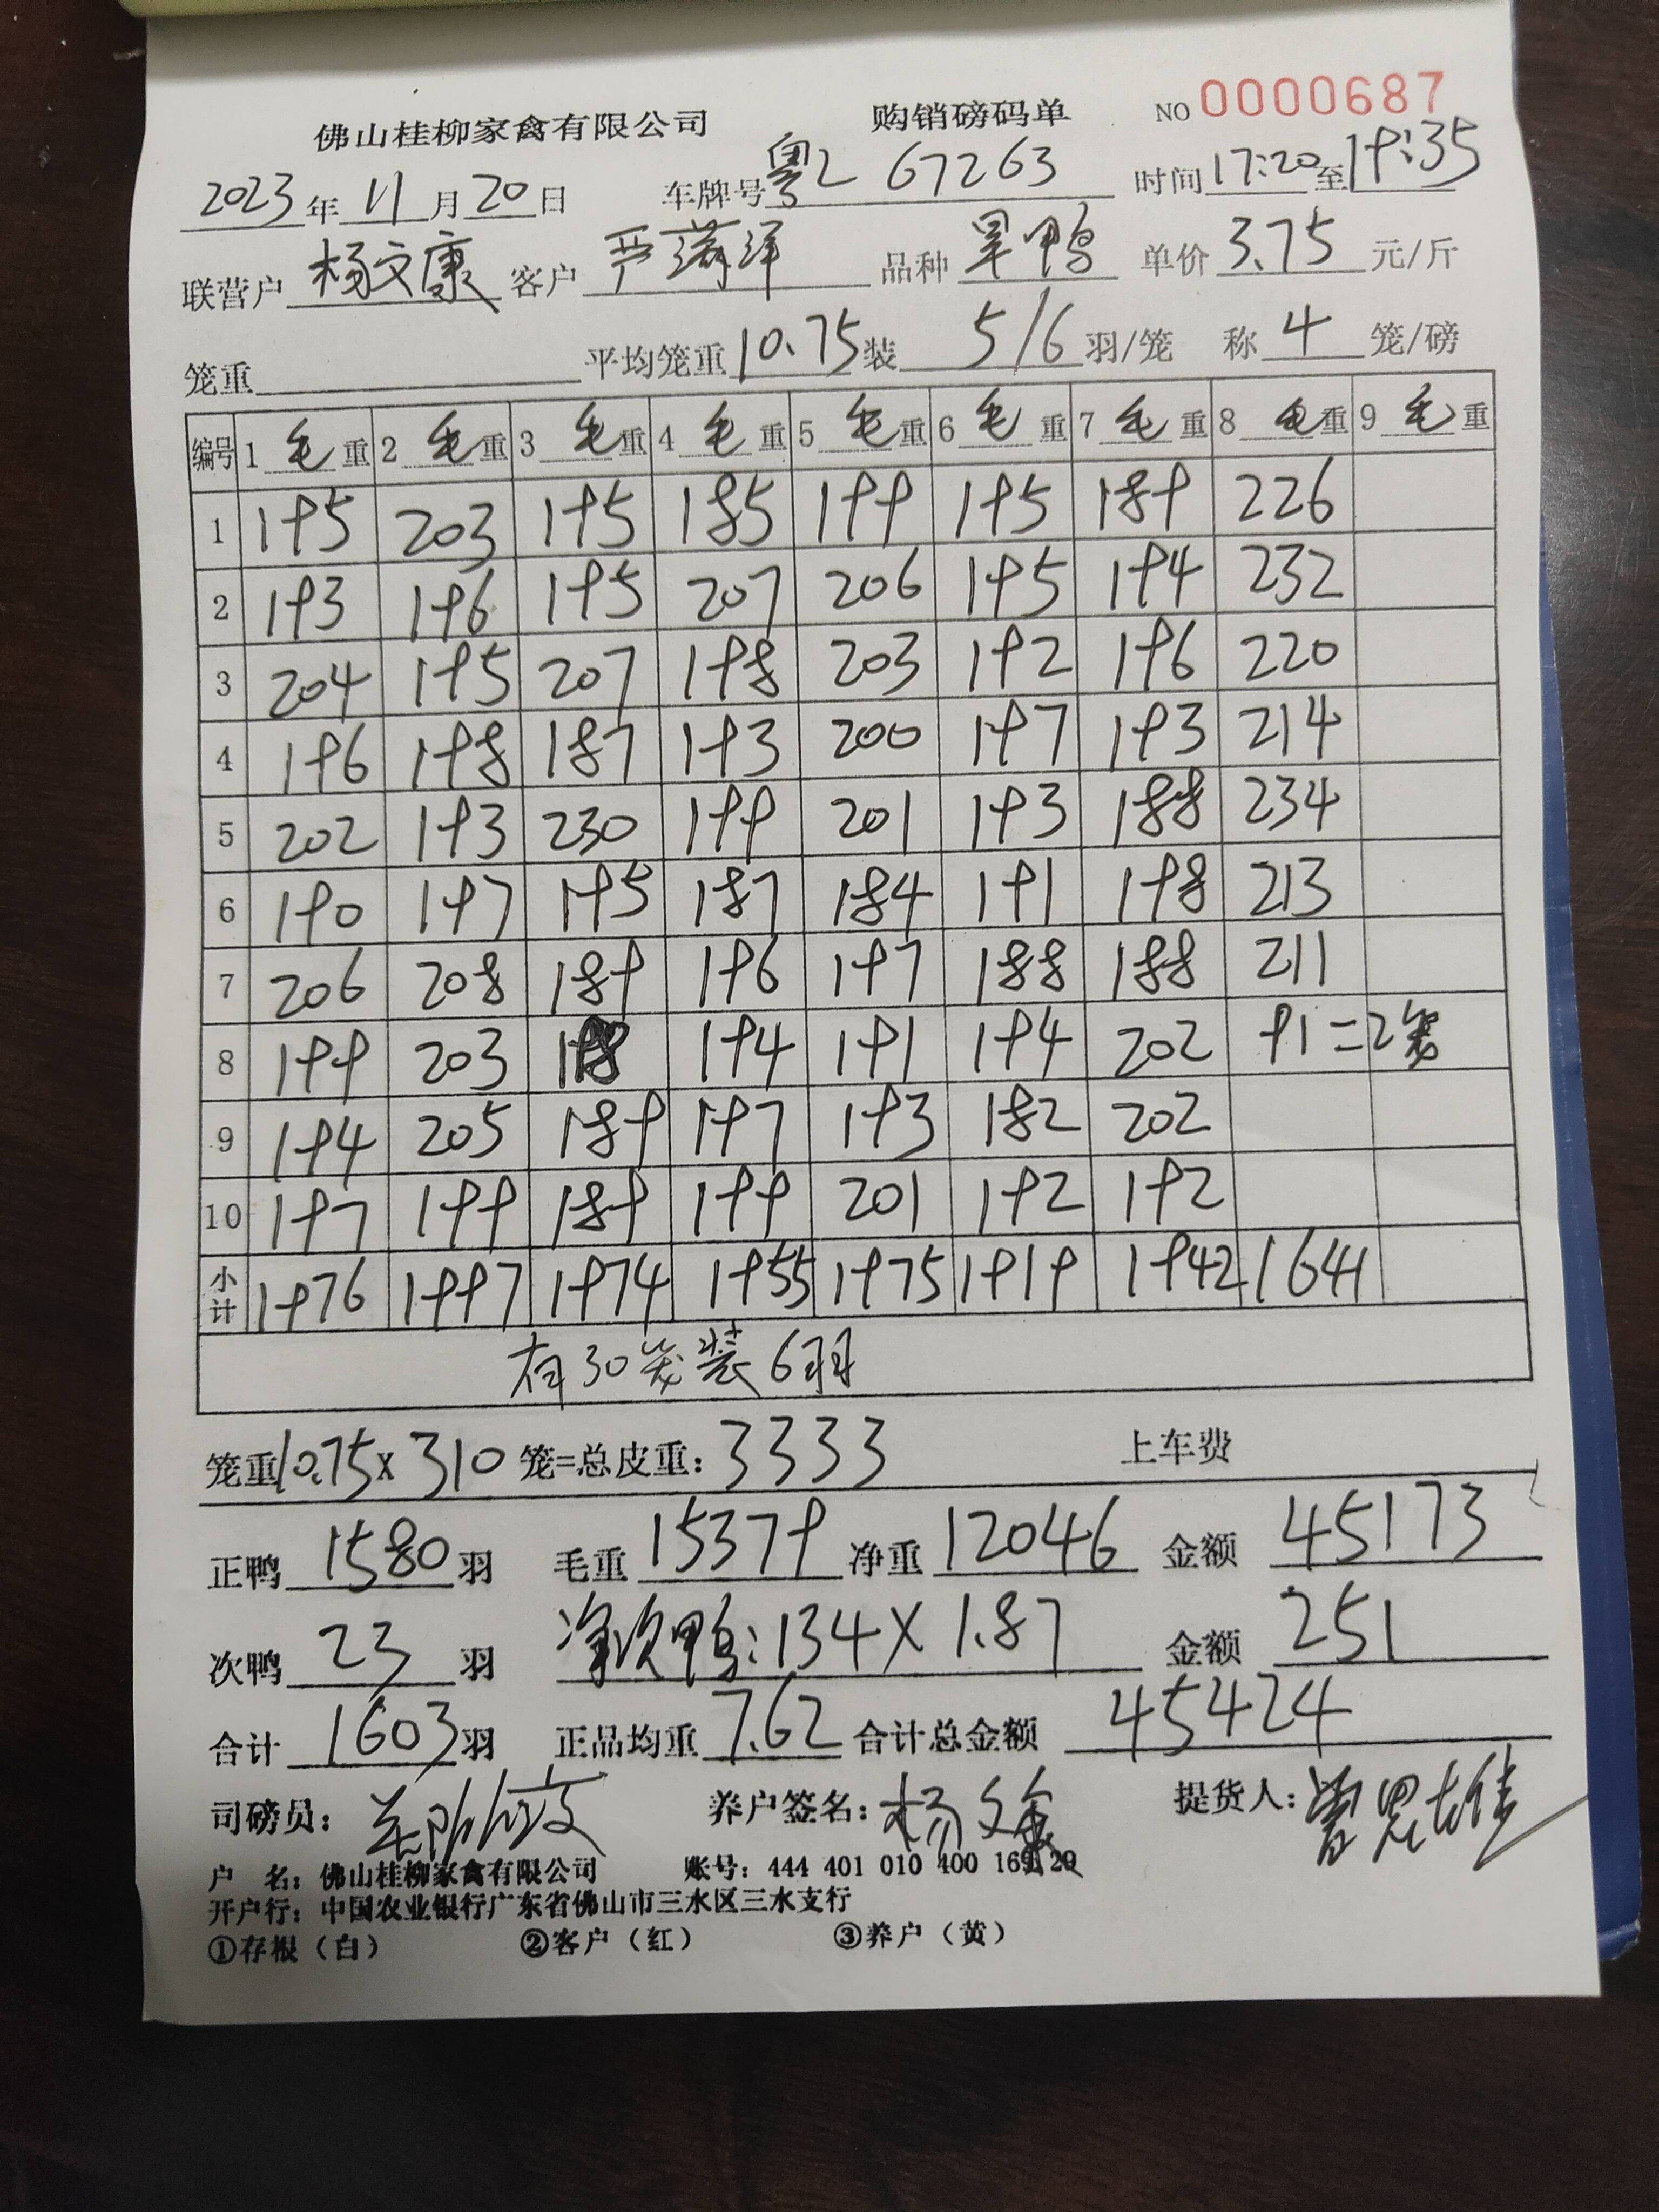 佛山桂柳家禽有限公司 购销磅码单 NO 0000687
2023年11月20日 车牌号粤L 67263 时间17:20至19:35
联营户 杨文康 客户 严满洋 品种 旱鸭 单价 3.75 元/斤
笼重 平均笼重 10.75 装 5/6 羽/笼 称 4 笼/磅
编号 1 毛重 2 毛重 3 毛重 4 毛重 5 毛重 6 毛重 7 毛重 8 毛重 9 毛重
1 195 203 195 185 199 195 189 226
2 193 196 195 207 206 195 194 232
3 204 195 207 198 203 192 196 220
4 196 198 187 193 200 197 193 214
5 202 193 230 199 201 193 188 234
6 190 197 195 187 184 191 198 213
7 206 208 189 196 197 188 188 211
8 199 203 198 194 191 194 202 91=2笼
9 194 205 189 197 193 182 202
10 197 199 189 199 201 192 192
小计 1976 1997 1974 1955 1975 1919 1942 1641
有30笼装6羽
笼重10.75×310笼=总皮重：3333 上车费
正鸭 1580 羽 毛重 15379 净重 12046 金额 45173
次鸭 23 羽 净次鸭：134×1.87 金额 251
合计 1603 羽 正品均重 7.62 合计总金额 45424
司磅员： 养户签名：杨文康 提货人：曾思雄
户 名：佛山桂柳家禽有限公司 账号：444 401 010 400 169 20
开户行：中国农业银行广东省佛山市三水区三水支行
①存根（白） ②客户（红） ③养户（黄）